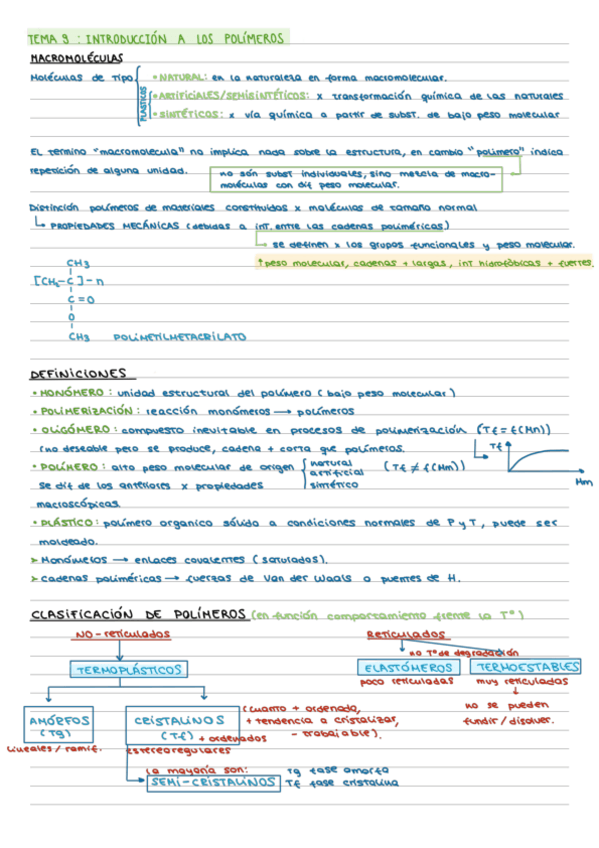 TEMA 9 : INTRODUCCIÓN A LOS POLÍMEROS
MACROMOLÉCULAS
Moléculas de tipo
• NATURAL: en la naturaleza en forma macromolecular.
• ARTIFICIALES/SEMISINTÉTICOS: x transformación química de las naturales
• SINTÉTICOS: x vía química a partir de subst. de bajo peso molecular
PLASTICOS
EL termino "macromolecula" no implica nada sobre la estructura, en cambio "polimero" indica
repetición de alguna unidad.
no són subst individuales, sino mezcla de macro-
moléculas con dif peso molecular.
Distinción polímeros de materiales constituidos x moléculas de tamaño normal
↳ PROPIEDADES MECÁNICAS (debidas a int. entre las cadenas poliméricas)
↳ se definen x los grupos funcionales y peso molecular.
↑peso molecular, cadenas + largas, int hidrofóbicas + fuertes.
CH3
[CH2-C]-n
C=O
O
CH3 POLIMETILMETACRILATO
DEFINICIONES
• MONÓMERO : unidad estructural del polímero (bajo peso molecular)
• POLIMERIZACIÓN : reacción monómeros → polímeros
• OLIGÓMERO : compuesto inevitable en procesos de polimerización (Tf = f(Mn))
(no deseable pero se produce, cadena + corta que polímeros.
Tf
Mm
• POLÍMERO : alto peso molecular de origen
natural
artificial
sintético
(Tf ≠ f(Mm))
se dif de los anteriores x propiedades
macroscópicas
• PLÁSTICO : polímero organico sólido a condiciones normales de P y T, puede ser
moldeado.
➤ Monómelos → enlaces covalentes (saturados).
➤ cadenas poliméricas → fuerzas de Van der Waals o puentes de H.
CLASIFICACIÓN DE POLÍMEROS (en función comportamiento frente la Tº)
NO-reticulados
Reticulados
no Tº de degradación
TERMOPLÁSTICOS
ELASTÓMEROS
TERMOESTABLES
poco reticuladas
muy reticulados
no se pueden
fundir / disolver.
AMÓRFOS
(Tg)
lineales / ramif.
CRISTALINOS
(Tf) + ordenados
estereoregulares
(cuanto + ordenado,
+ tendencia a cristalizar,
- trabajable).
la mayoría son:
SEMI-CRISTALINOS
Tg fase amorfa
Tf fase cristalina